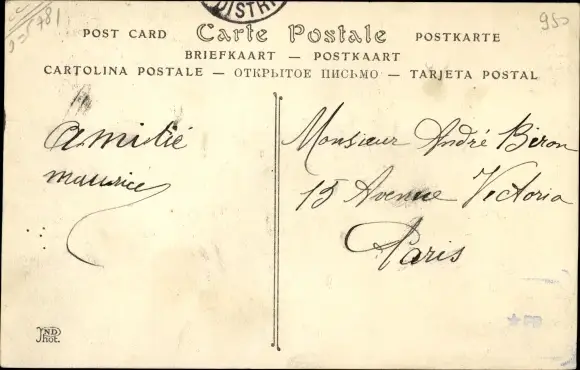 DISTRI
95781
980
POST CARD Carte Postale POSTKARTE
BRIEFKAART — POSTKAART
CARTOLINA POSTALE — ОТКРЫТОЕ ПИСЬМО — TARJETA POSTAL
Amitié
maurice
Monsieur André Biron
15 Avenue Victoria
Paris
ND
Phot.